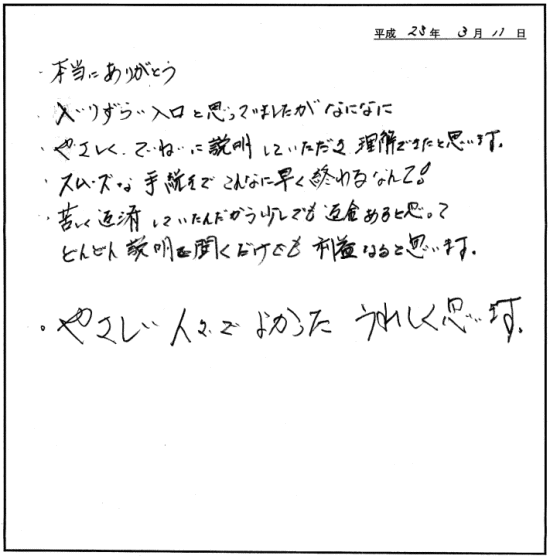 平成 25年 3月 11日
・本当にありがとう
・入りずらい入口と思っていましたがなになに
・やさしく、ていねいに説明していただき理解できたと思います。
・スムーズな手続きでこんなに早く終わるなんて!
・苦しく返済していたんだから少しでも返金あると思って
どんどん説明を聞くだけでも利益なると思います。
・やさしい人々でよかった うれしく思います。